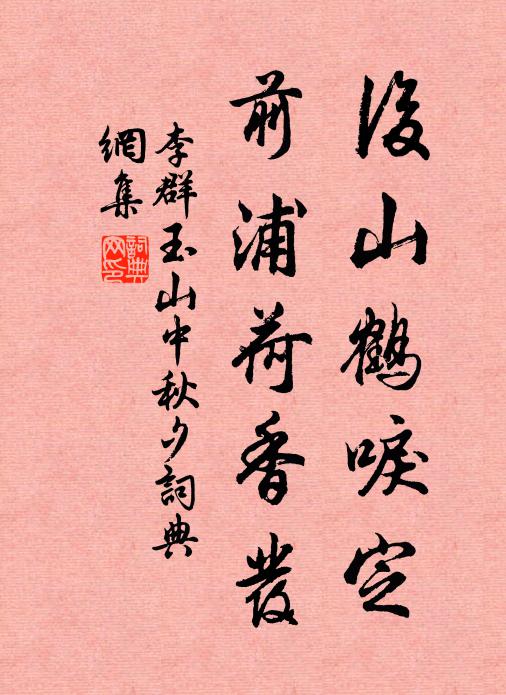 後山鶴唳定
前浦荷香發
李群玉山中秋夕詞典
網集
詞典
网印